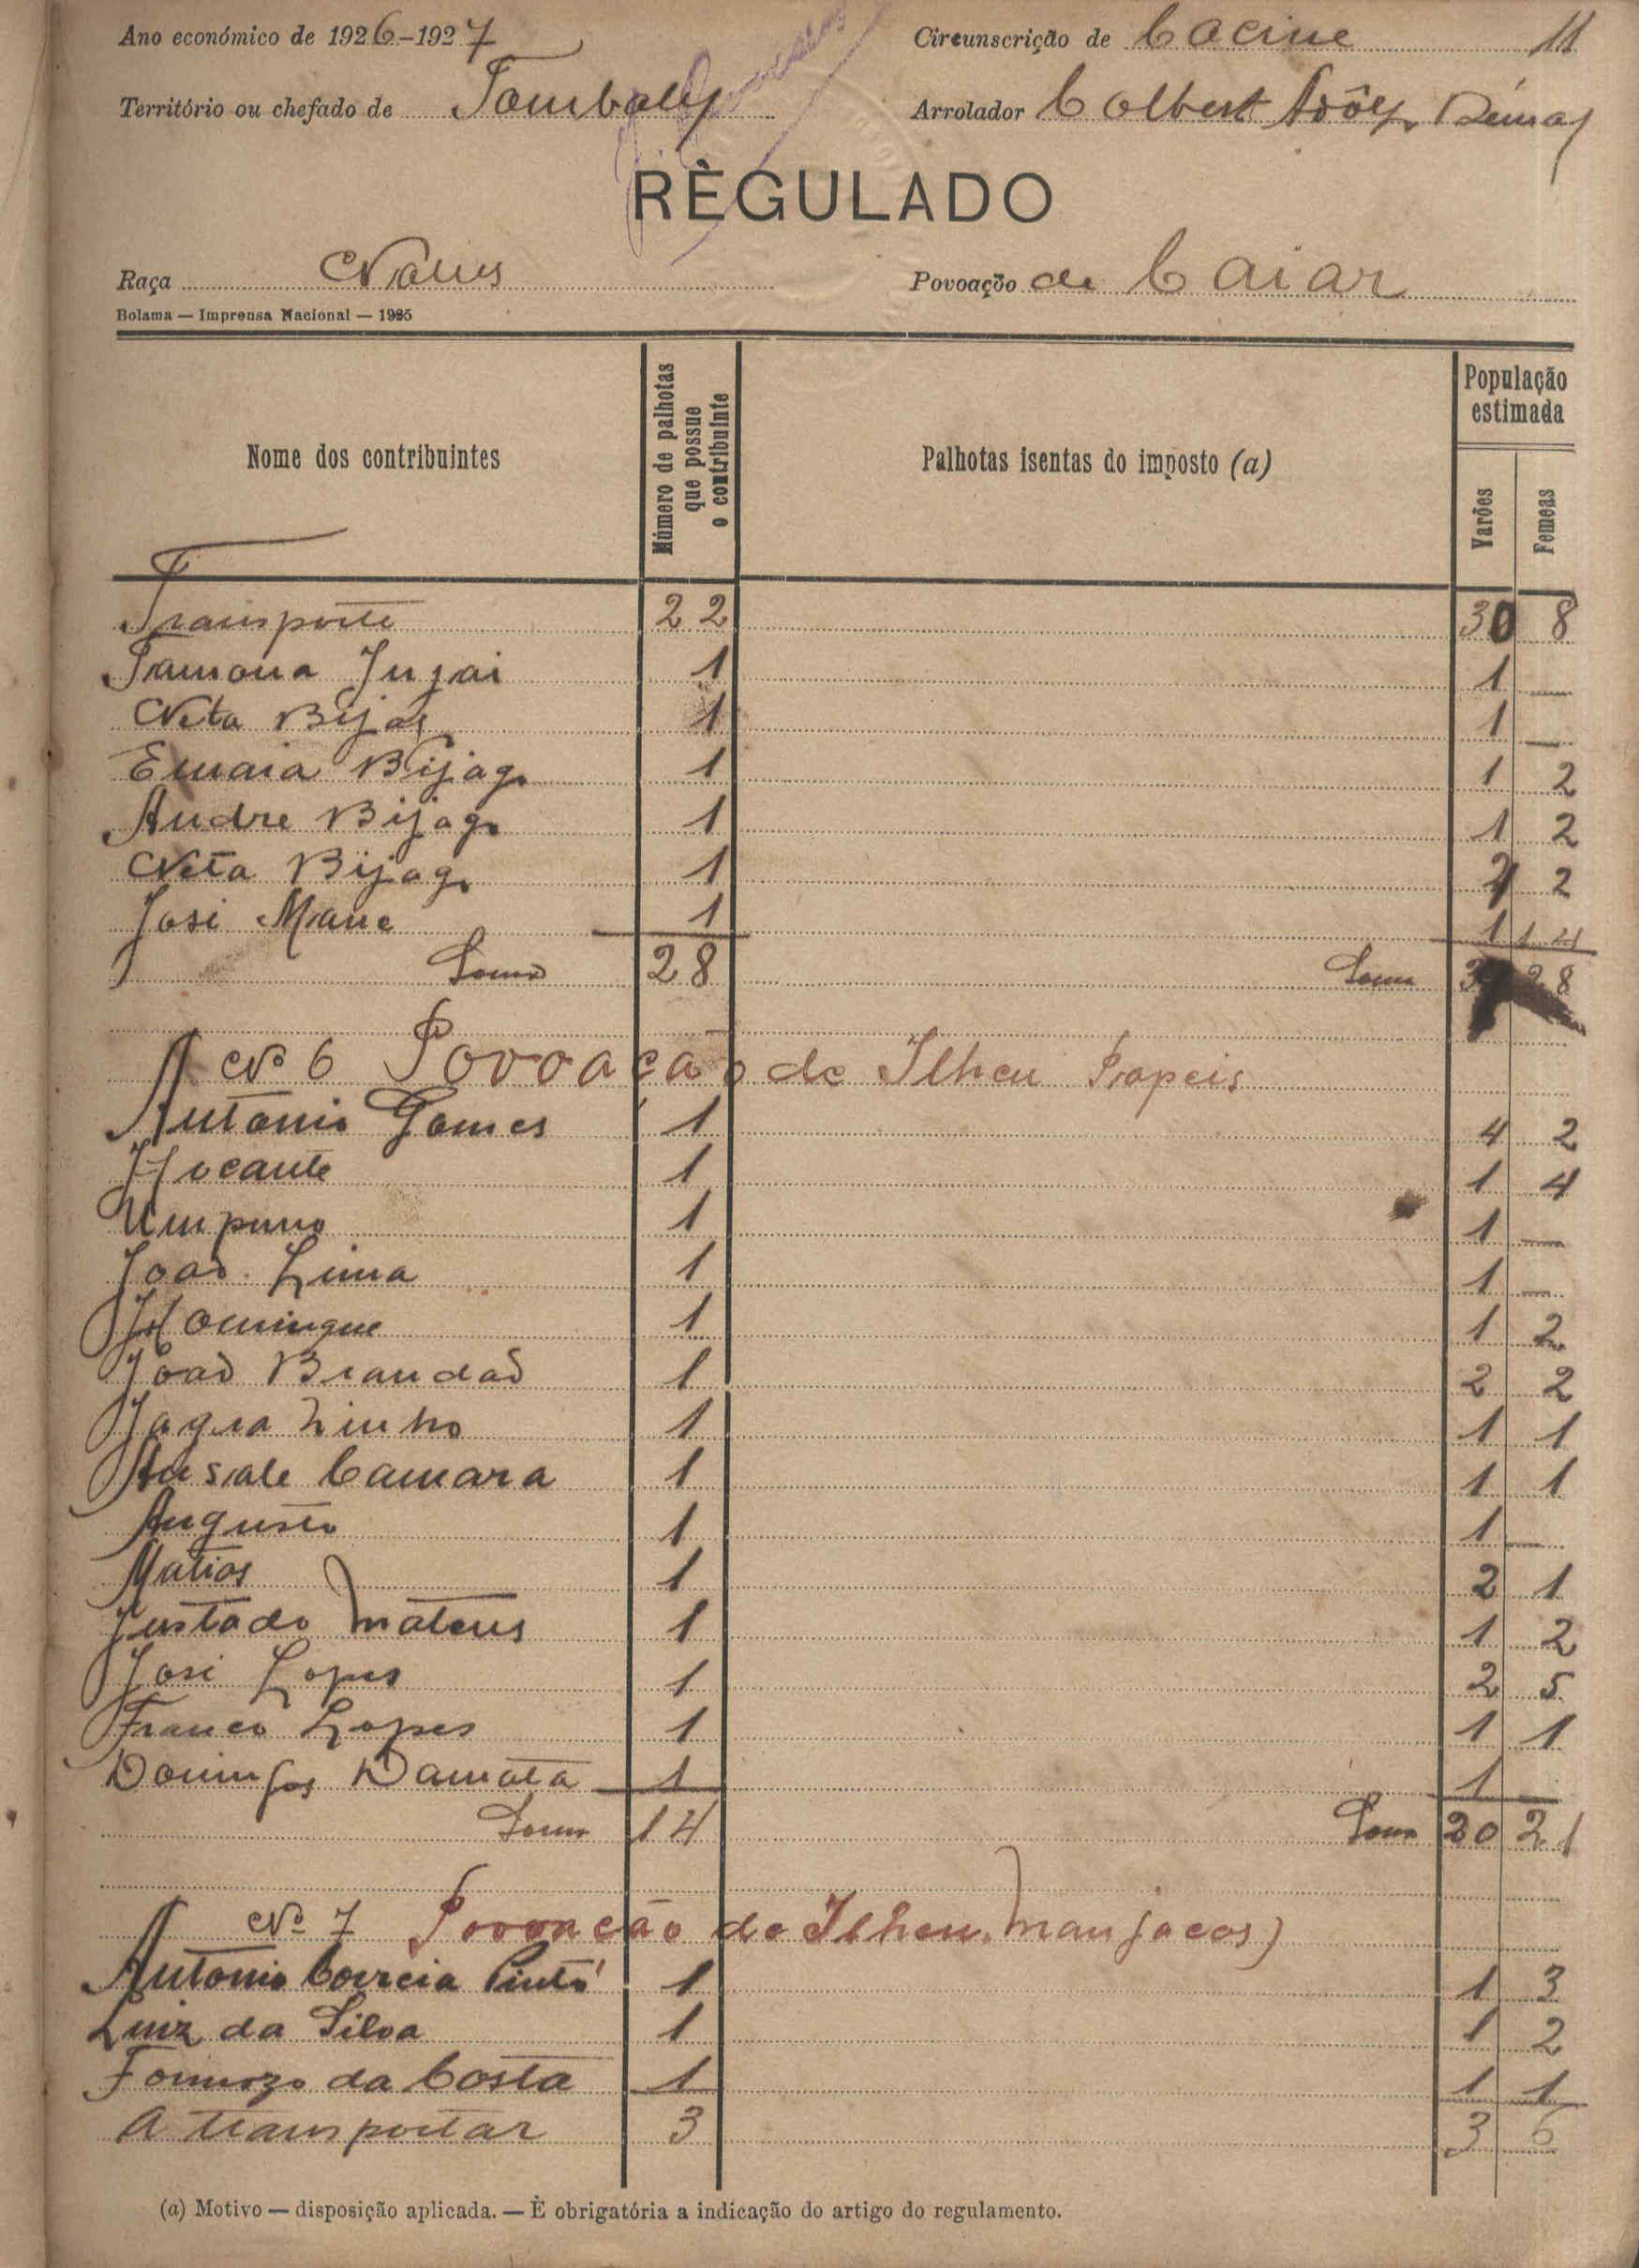 Ano económico de 1926-1927 Circunscrição de Cacine 11
Território ou chefado de Tombaly Arrolador Colbert
RÈGULADO
Raça Nalús Povoação de Caiar
Bolama — Imprensa Nacional — 1925
Nome dos contribuintes
Número de palhotas que possue o contribuinte
Palhotas isentas do imposto (a)
População estimada
Varões
Femeas
Transporte 22 30 8
Tamona 1 1 —
Neta Bijag 1 1 —
Emaia Bijago 1 1 2
Andre Bijago 1 1 2
Neta Bijago 1 2 2
José Mane 1 1
Soma 28 Soma 28
Nº 6 Povoação de Ilheu Papeis
António Gomes 1 4 2
1 1 4
Umpuno 1 1 —
João Lima 1 1 —
Domingue 1 1 2
João Brandão 1 2 2
Jagra Zinho 1 1 1
Camara 1 1 1
Augusto 1 1 —
Matias 1 2 1
Justado Mateus 1 1 2
José Lopes 1 2 5
Franco Lopes 1 1 1
Domingos Damata 1 1
Soma 14 Soma 20 21
Nº 7 Povoação de Ilheu Manjacos)
António Correia Pinto 1 1 3
Luiz da Silva 1 1 2
Formozo da Costa 1 1 1
A transportar 3 3 6
(a) Motivo — disposição aplicada. — È obrigatória a indicação do artigo do regulamento.